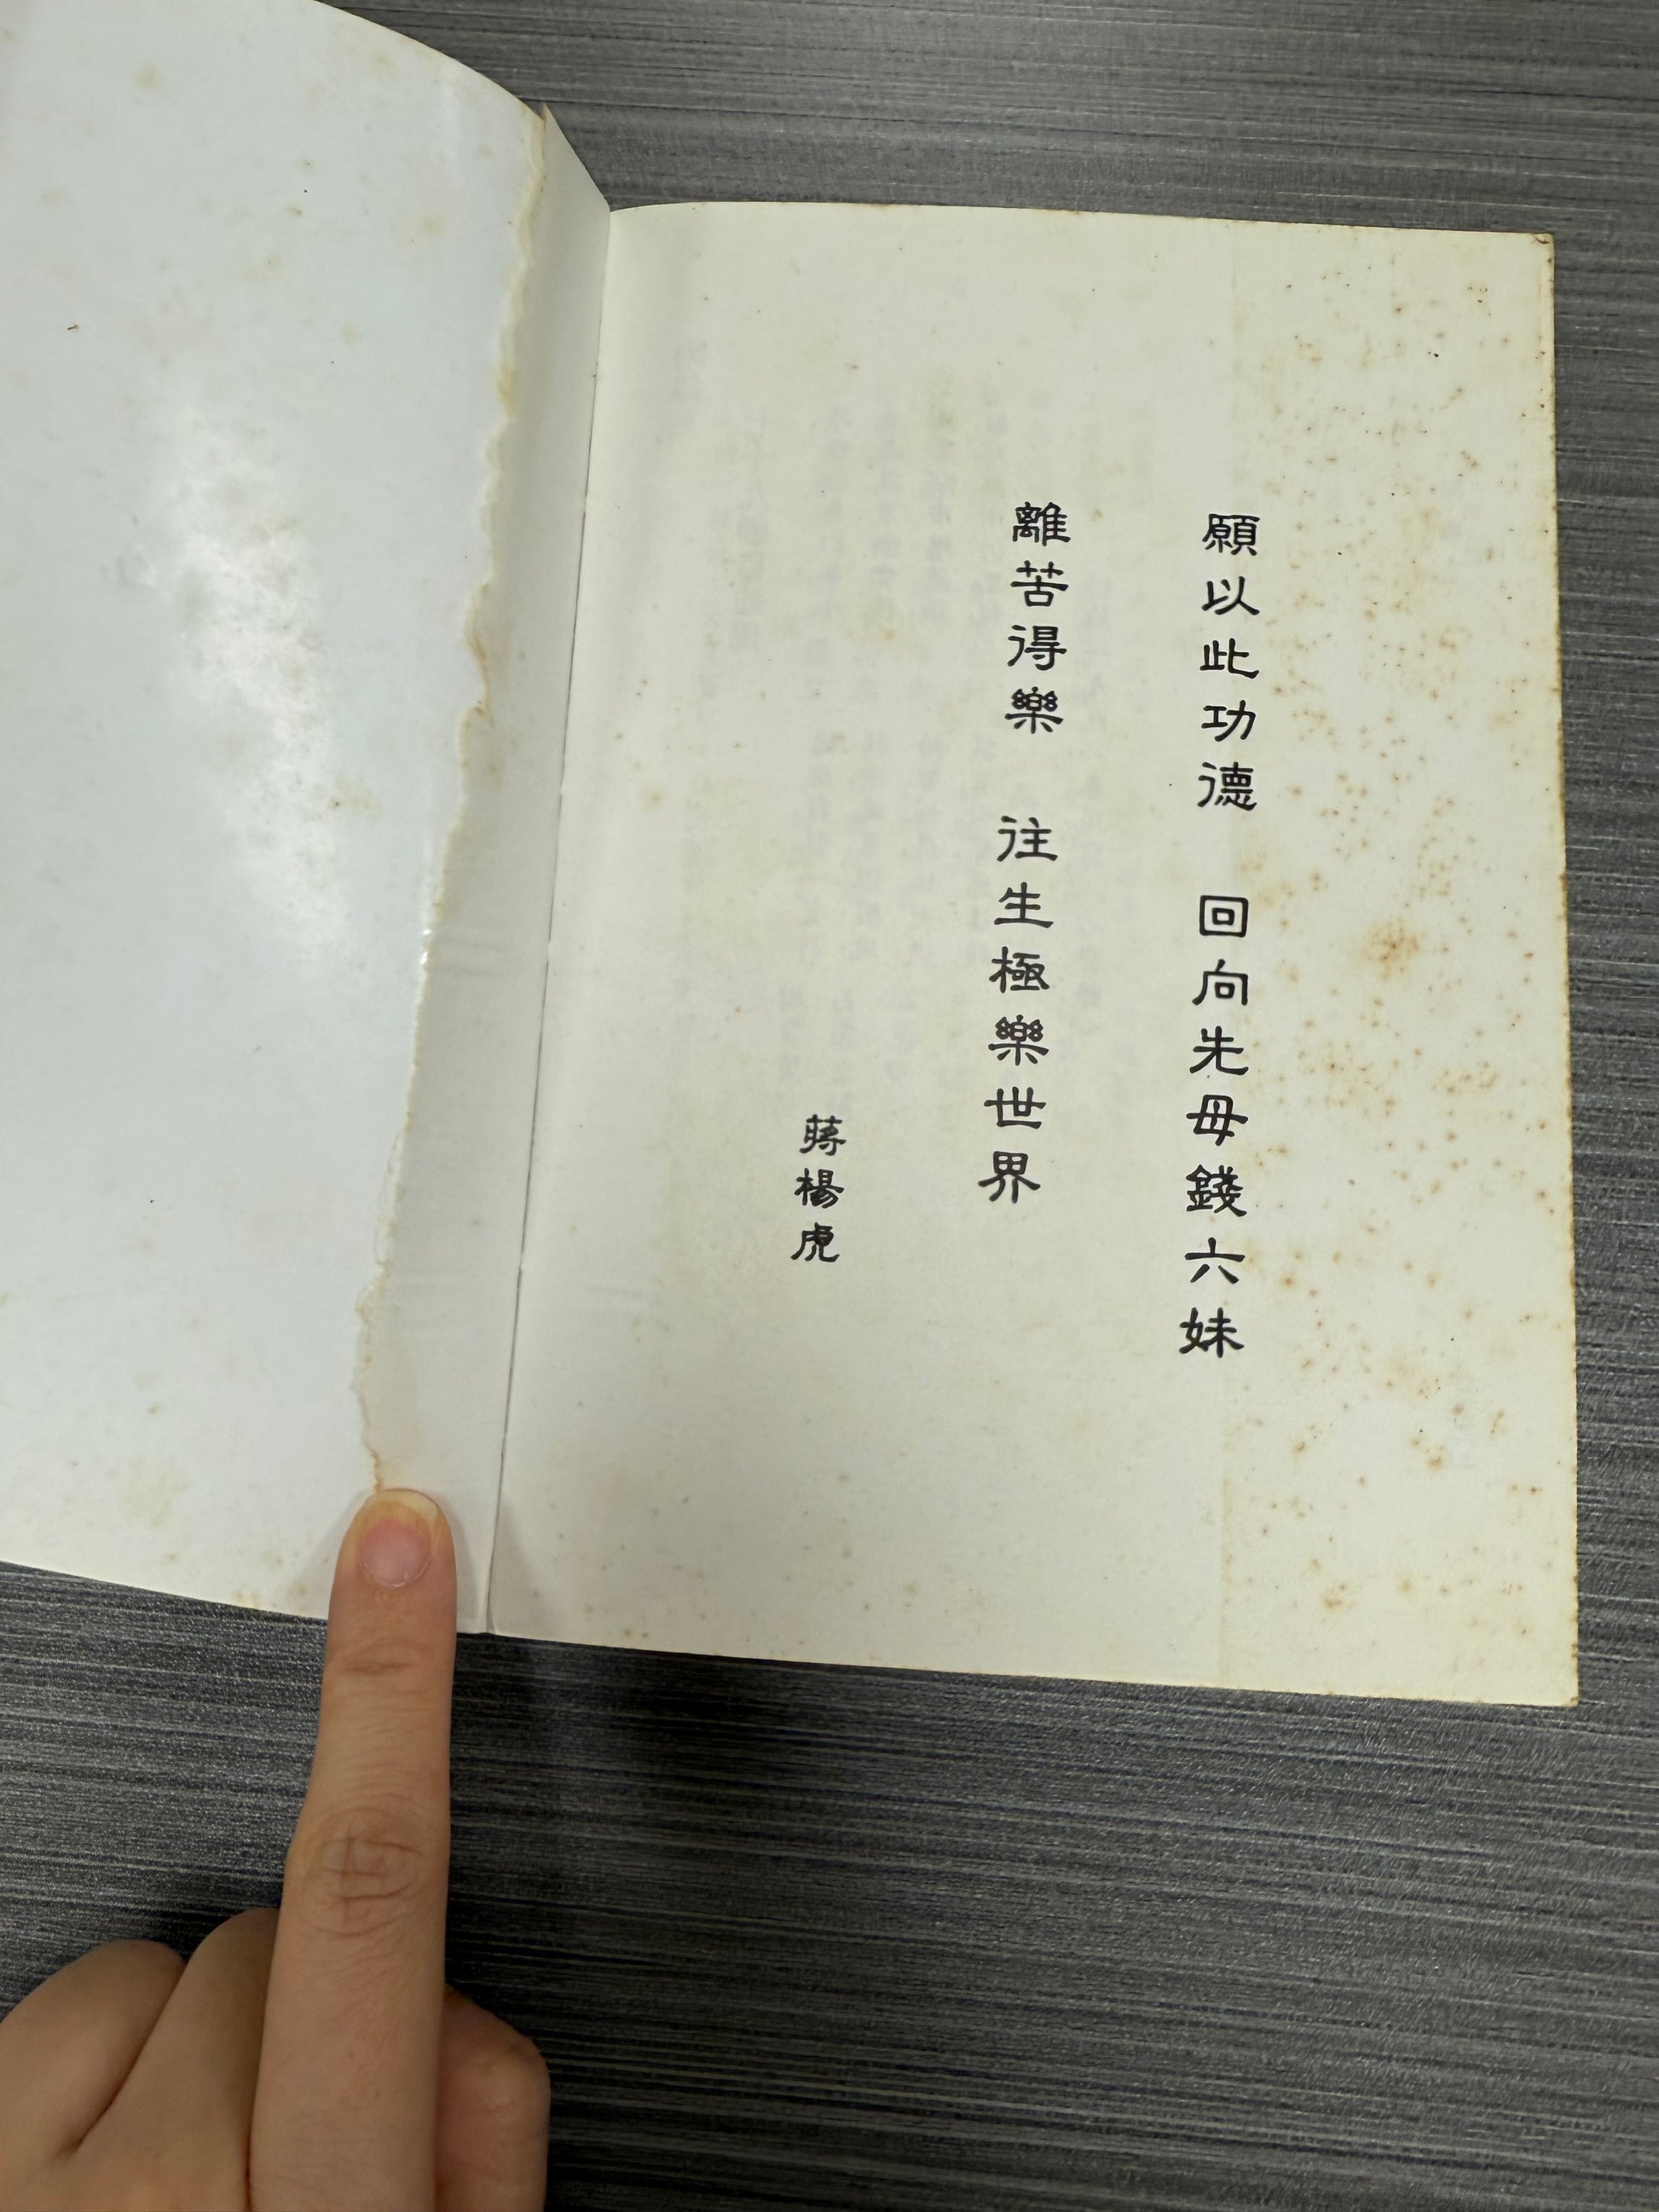 願以此功德　回向先母錢六妹
離苦得樂　往生極樂世界
蔣楊虎